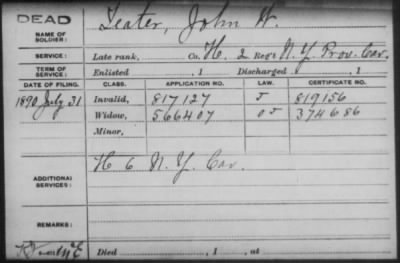 DEAD
NAME OF SOLDIER: Teater, John W.
SERVICE: Late rank, Co. H. 2 Reg't N.Y. Prov. Cav.
TERM OF SERVICE: Enlisted , 1 Discharged , 1
DATE OF FILING. CLASS. APPLICATION NO. LAW. CERTIFICATE NO.
1890 July 31 Invalid, 817127 J 819156
Widow, 566407 O J 374686
Minor,
ADDITIONAL SERVICES: H 6 N.Y. Cav.
REMARKS:
Died , 1 , at